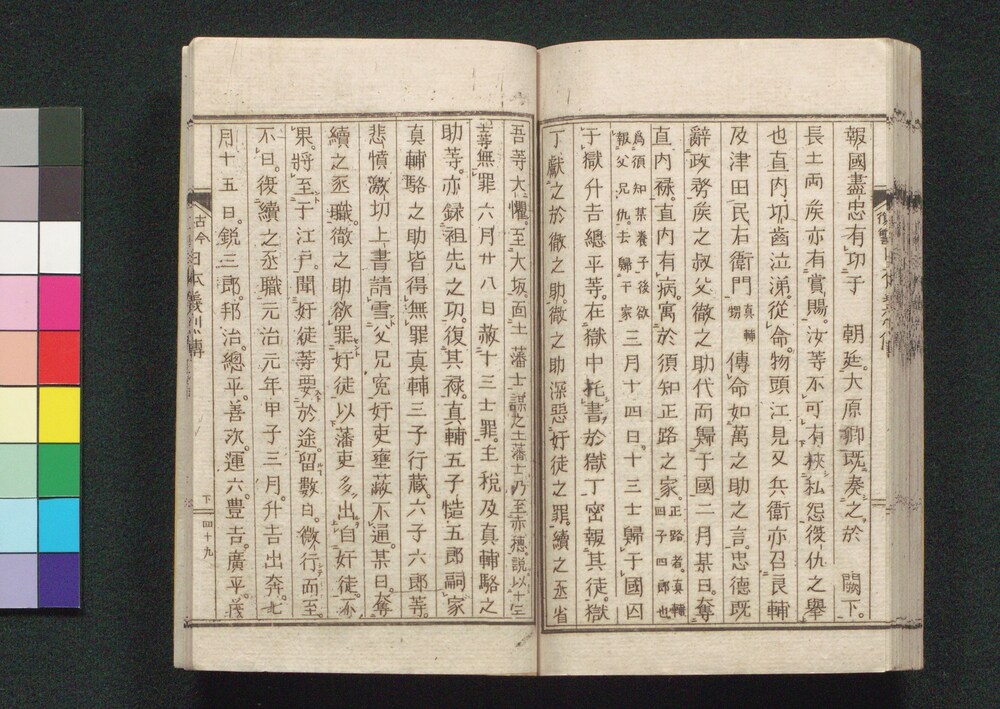 報國盡忠有功于 朝廷大原卿既奏之於 闕下。
長土両矦亦有賞賜。汝等不可有挾私怨復仇之舉
也直内切齒泣涕從命。物頭江見又兵衛亦召良輔
及津田民右衛門真輔甥傳命如萬之助之言。忠德既
辭政勞矦之叔父徹之助代而歸于國二月某日。奪
直内祿。直内有病。寓於須知正路之家正路者。真輔四子四郎也
爲須知某養子後欲報父兄仇。去歸干家三月十四日。十三士歸于國囚
于獄升吉總平等。在獄中托書。於獄丁密報其徒。獄
丁獻之於徹之助。徹之助深惡奸徒之罪。續之丞省
吾等大懼。至大坂。面土 藩士謀之土藩士乃至赤穗。説以十三
士等無罪六月廿八日赦十三士罪。主稅及真輔駱之
助等。亦錄祖先之功。復其祿。真輔五子慥五郎嗣家
真輔駱之助皆得無罪真輔三子行藏。六子六郎等。
悲憤激切上書請雪父兄寃奸吏壅蔽不通。某日。奪
續之丞職。徹之助欲罪奸徒以藩吏多出自奸徒。不
果。將至于江戸。聞奸徒等要於途。留數日。微行而至。
不日。復續之丞職元治元年甲子三月。升吉出奔。七
月十五日。鋭三郎。邦治。總平。善次。運六。豐吉。廣平。茂
古今日本義烈傳
下 四十九